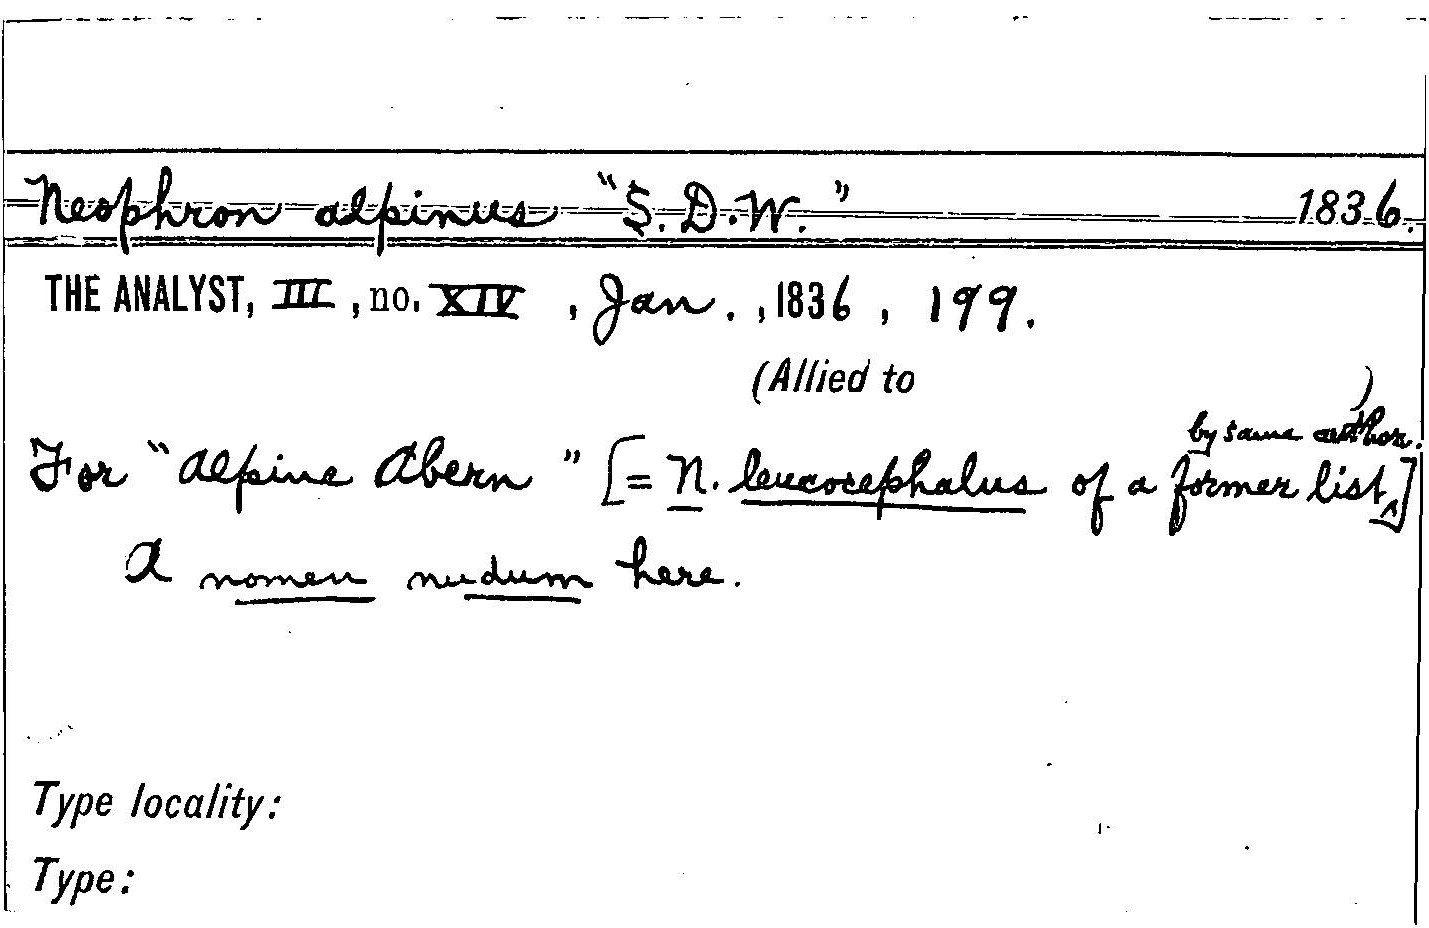 Neophron alpinus "S.D.W." 1836.
THE ANALYST, III, no. XIV, Jan., 1836, 199.
(Allied to )
by same author.
For "Alpine Abern" [= N. leucocephalus of a former list ^]
A nomen nudum here.
Type locality:
Type: